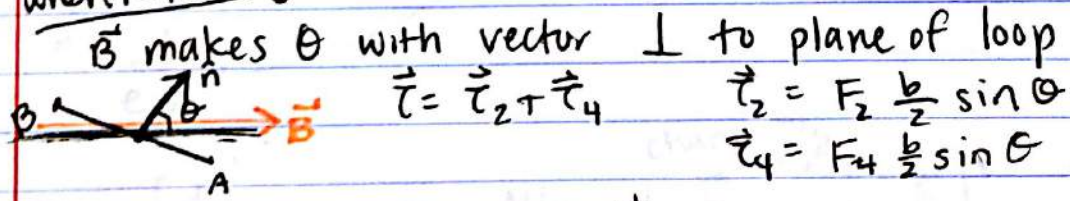 B⃗ makes θ with vector ⊥ to plane of loop
n̂
θ
B
B⃗
A
τ⃗ = τ⃗₂ + τ⃗₄
τ⃗₂ = F₂ b/2 sin θ
τ⃗₄ = F₄ b/2 sin θ